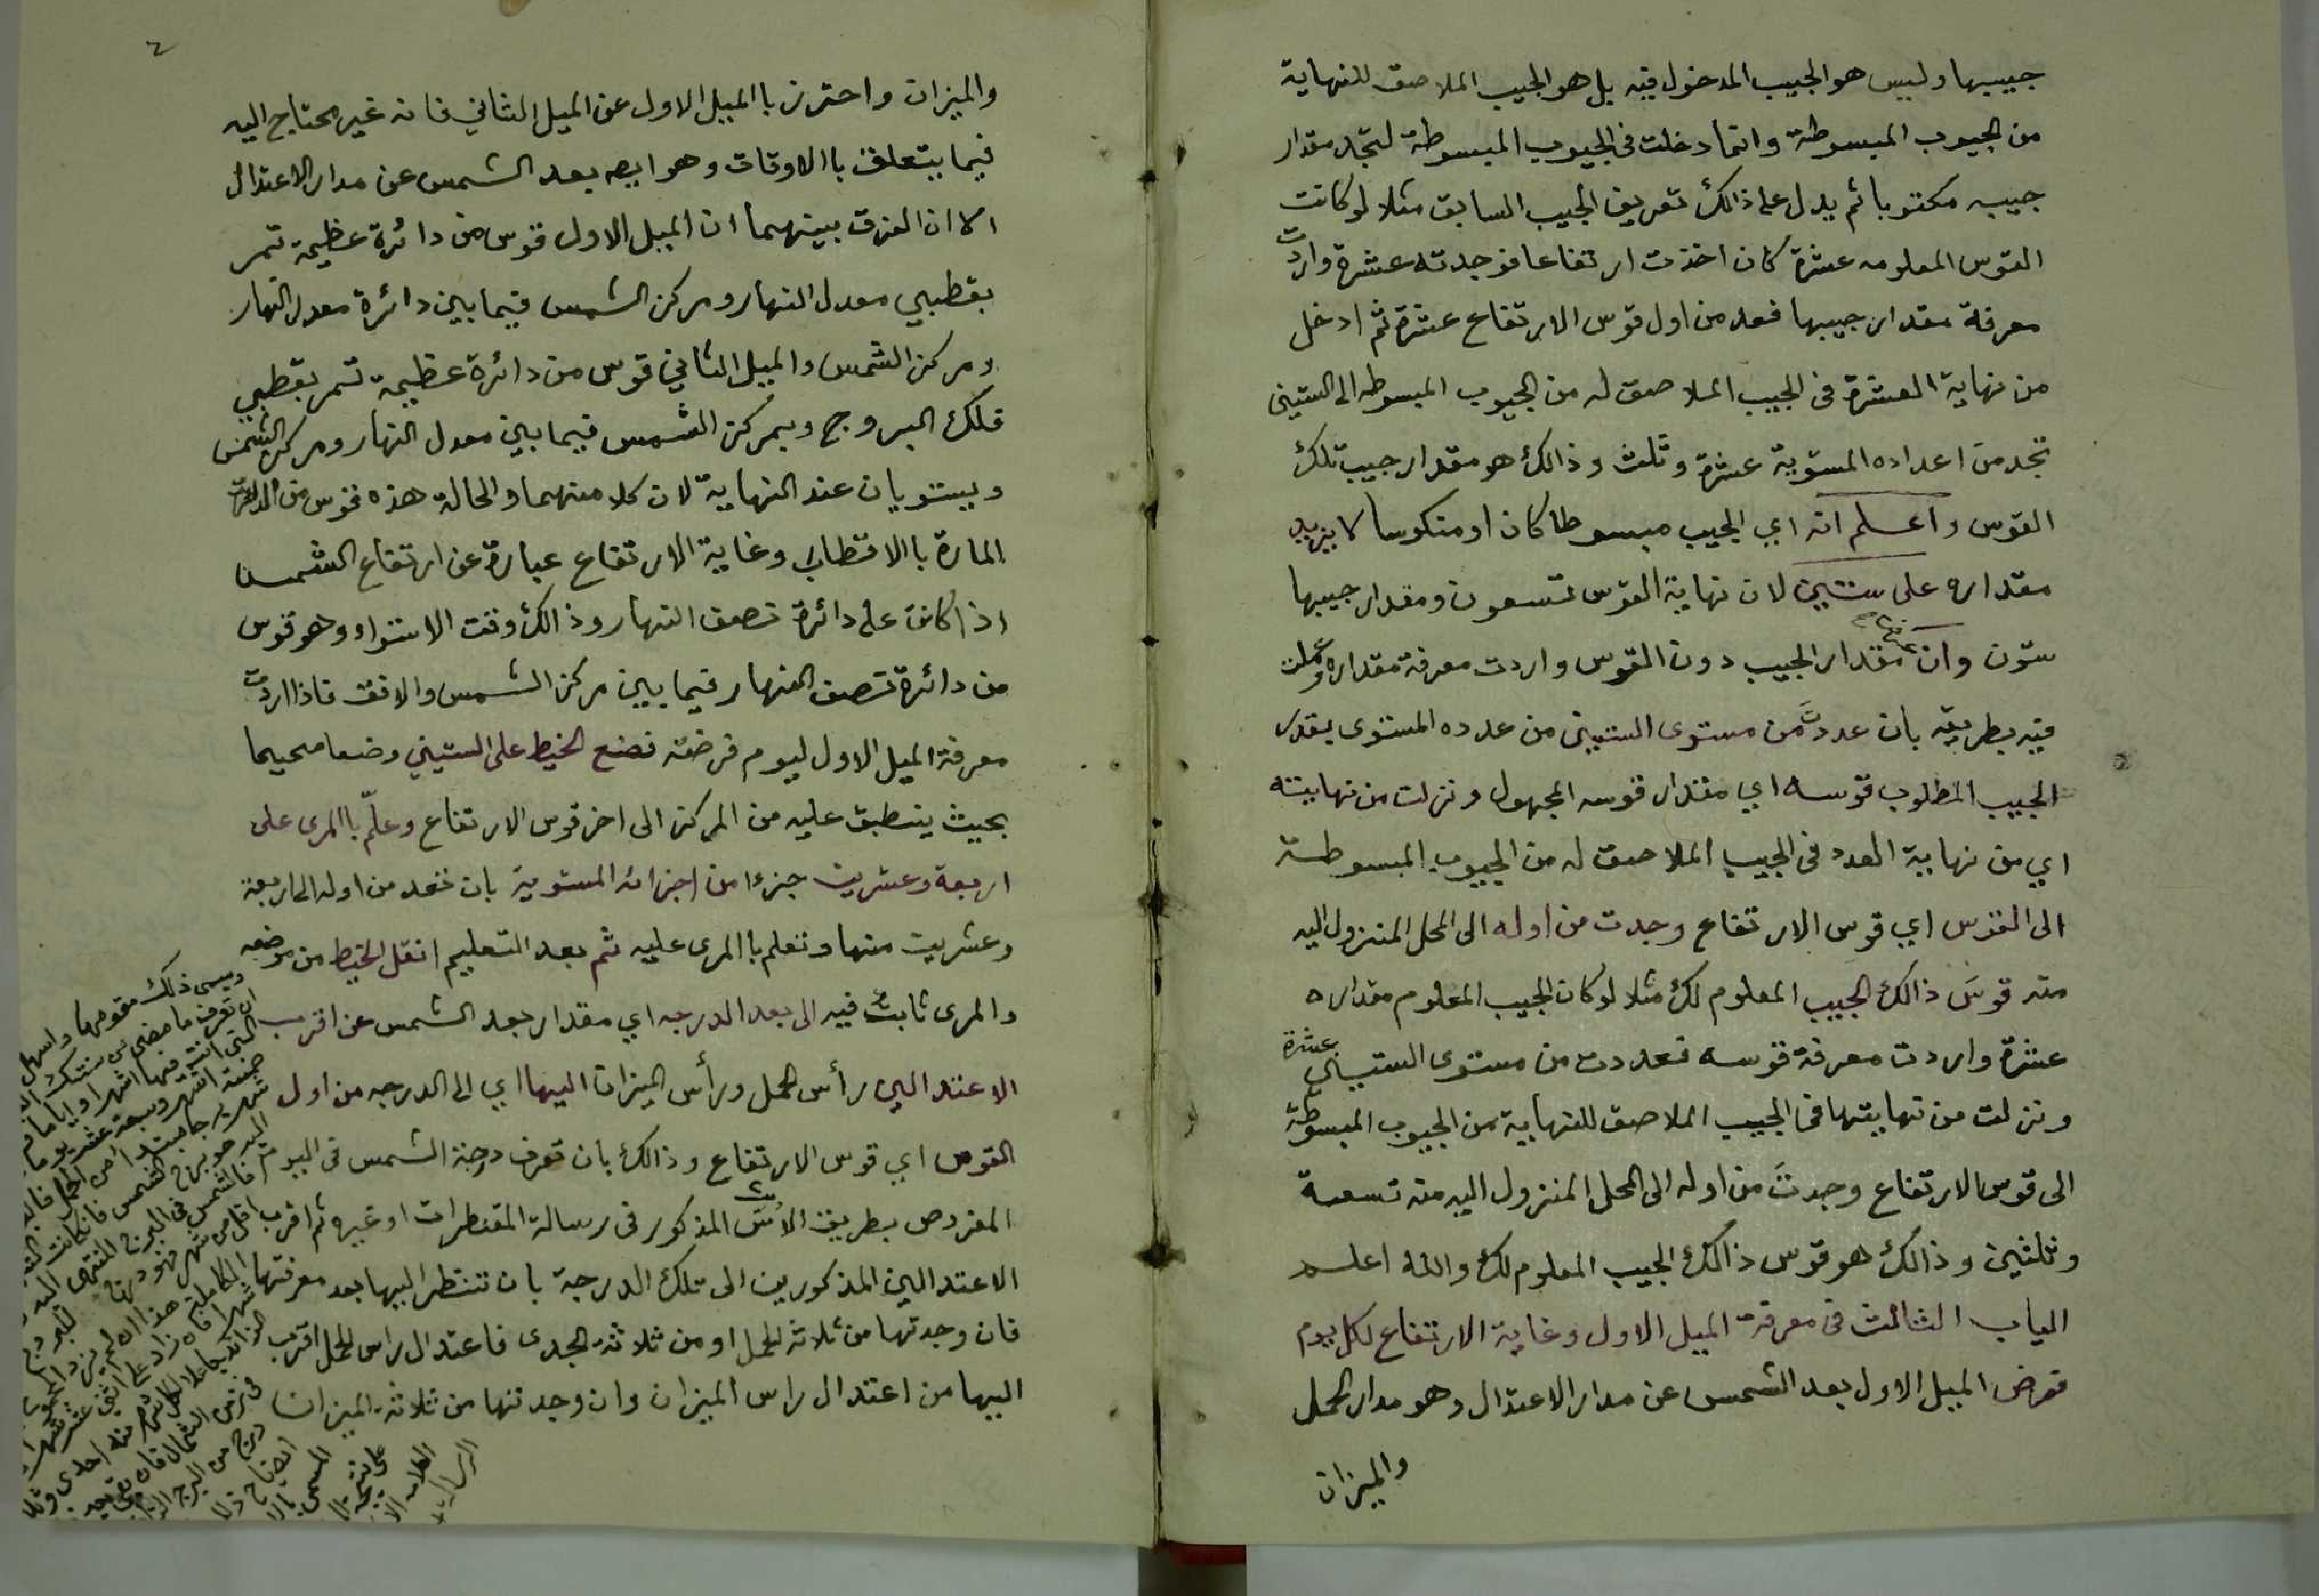 جيبها وليس هو الجيب المدخول فيه بل هو الجيب الملاصق للنهاية
من الجيوب المبسوطة وانما دخلت فى الجيوب المبسوطة لتجد مقدار
جيبه مكتوبا ثم يدل على ذالك تعريف الجيب السابق مثلا لو كانت
القوس المعلومه عشرة كان اخذت ارتفاعا فوجدته عشرة واردت
معرفة مقدار جيبها فعد من اول قوس الارتفاع عشرة ثم ادخل
من نهاية العشرة فى الجيب الملاصق له من الجيوب المبسوطه الى الستينى
تجد من اعداده المستوية عشرة وثلث وذالك هو مقدار جيب تلك
القوس واعلم انه اي الجيب مبسوطا كان او منكوسا لا يزيد
مقداره على ستين لان نهاية القوس تسعون ومقدار جيبها
ستون وان مقدار الجيب دون القوس واردت معرفة مقداره
فيه بطريقه بان عددت من مستوى الستينى من عدده المستوى بقدر
الجيب المطلوب قوسه اي مقدار قوسه المجهول ونزلت من نهايته
اي من نهاية العدد فى الجيب الملاصق له من الجيوب المبسوطة
الى القوس اي قوس الارتفاع وجدت من اوله الى المحل المنزول اليه
منه قوسَ ذالك الجيب المعلوم لك مثلا لو كان الجيب المعلوم مقداره
عشرة واردت معرفة قوسه فعددت من مستوى الستينى عشرة
ونزلت من نهايتها فى الجيب الملاصق للنهاية من الجيوب المبسوطة
الى قوس الارتفاع وجدتَ من اوله الى المحل المنزول اليه منه تسعة
وثلثين وذالك هو قوس ذالك الجيب المعلوم لك والله اعلم
الباب الثالث فى معرفة الميل الاول وغاية الارتفاع لكل يوم
فرض الميل الاول بعد الشمس عن مدار الاعتدال وهو مدار الحمل
والميزان
٤
والميزان واحترز باالميل الاول عن الميل الثاني فانه غير محتاج اليه
فيما يتعلق باالاوقات وهو ايصه بعد الشمس عن مدار الاعتدال
الا ان الفرق بينهما ان الميل الاول قوس من دائرة عظيمة تمر
بقطبي معدل النهار ومركز الشمس فيما بين دائرة معدل النهار
ومركز الشمس والميل الثاني قوس من دائرة عظيمة تمر بقطبي
فلك البروج وبمركز الشمس فيما بين معدل النهار ومركز الشمس
ويستويان عند النهاية لان كلا منهما والحالة هذه قوس من الدائرة
المارة باالاقطاب وغاية الارتفاع عبارة عن ارتفاع الشمس
اذا كانت على دائرة نصف النهار وذالك وقت الاستواء وهو قوس
من دائرة نصف النهار فيما بين مركز الشمس والافق فاذا اردت
معرفة الميل الاول ليوم فرضته فضع الخيط على الستيني وضعا صحيحا
بحيث ينطبق عليه من المركز الى اخر قوس الارتفاع وعلّم باالمرى على
اربعة وعشرين جزءا من اجزائه المستوية بان تعد من اوله الى اربعة
وعشرين منها وتعلم باالمرى عليه ثم بعد التعليم انقل الخيط من موضعه
والمرى ثابت فيه الى بعد الدرجه اي مقدار بعد الشمس عن اقرب
الاعتدالين راس الحمل ورأس الميزان اليها اي الى الدرجه من اول
القوس اي قوس الارتفاع وذالك بان تعرف درجة الشمس فى اليوم
المفروض بطريق الاُسّ المذكور فى رسالة المقنطرات او غيره ثم اقرب
الاعتدالين المذكورين الى تلك الدرجة بان تنظر اليها بعد معرفتها
فان وجدتها من ثلاثة الحمل او من ثلاثة الجدى فاعتدال راس الحمل اقرب
اليها من اعتدال راس الميزان وان وجدتها من ثلاثة الميزان
ويسمى ذلك مقومها واسهل
ان تعرف ما مضى من سنتك
التى انت فيها اشهرا واياما
خمسة اشهر وسبعة عشر يوما
شهر برجا مبتدا من الحمل
اليه هو برج الشمس فان كانت
فالشمس فى البرج المنتهى اليه
اقل من شهر فهو درج